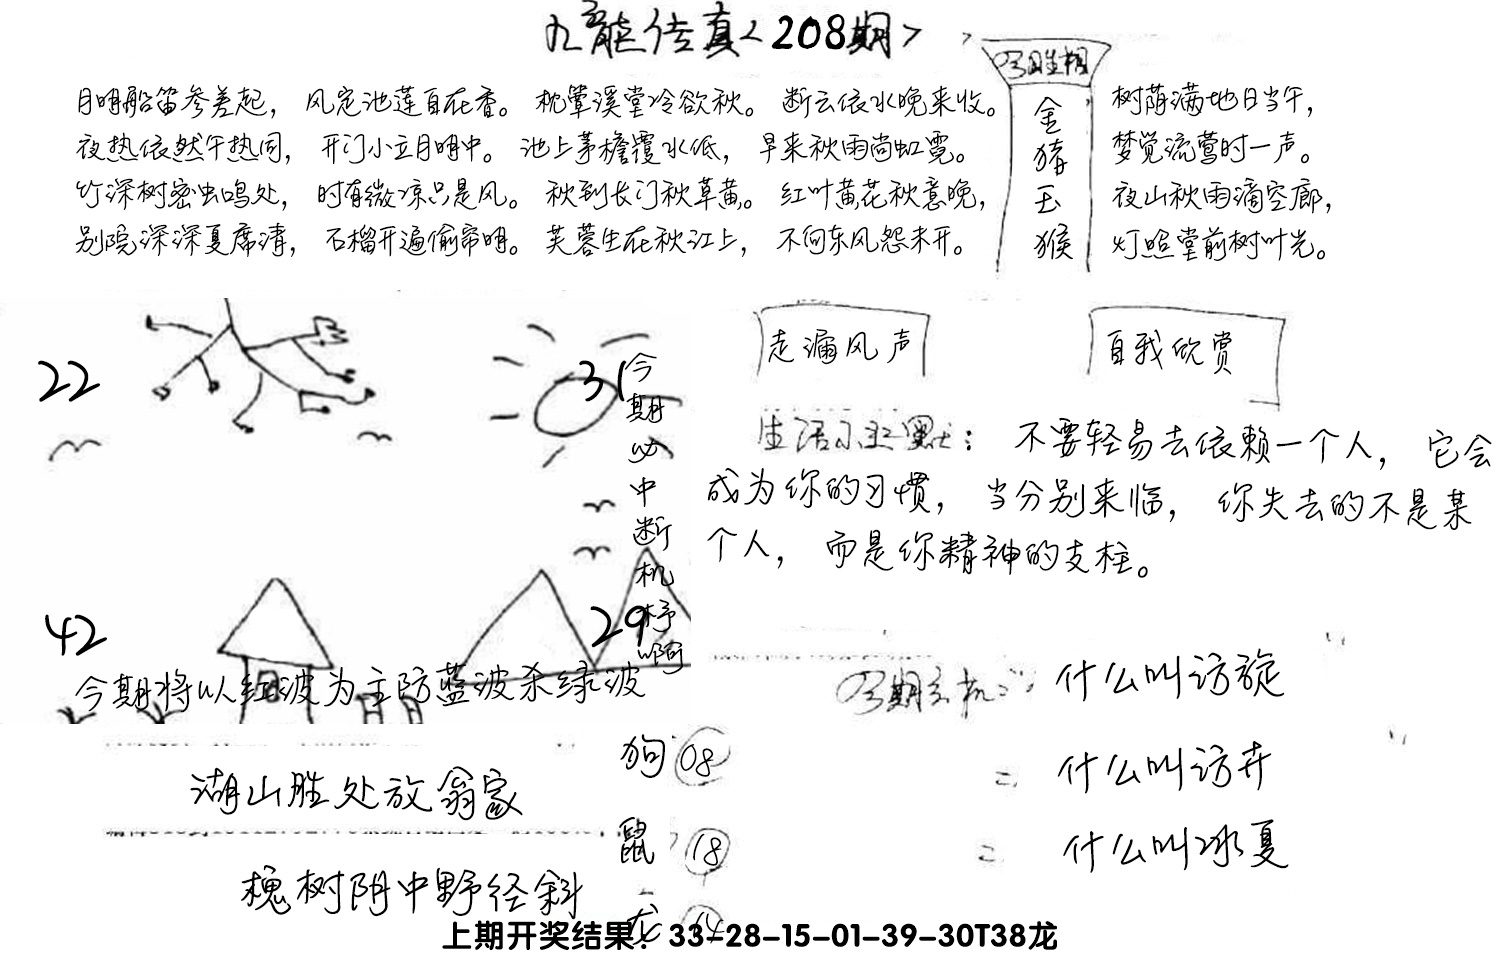 九龙传真<208期>
今期生相
金猪玉猴
月明船笛参差起， 风定池莲自在香。 枕簟溪堂冷欲秋。 断云依水晚来收。
树荫满地日当午，
夜热依然午热同， 开门小立月明中。 池上茅檐覆水低， 早来秋雨尚虹霓。
梦觉流莺时一声。
竹深树密虫鸣处， 时有微凉只是风。 秋到长门秋草黄。 红叶黄花秋意晚，
夜山秋雨滴空廊，
别院深深夏席清， 石榴开遍偷帘明。 芙蓉生在秋江上， 不向东风怨未开。
灯照堂前树叶光。
22
31
今期必中断机杼啊
42
29
今期将以红波为主防蓝波杀绿波
走漏风声
自我欣赏
生活小幽默： 不要轻易去依赖一个人， 它会
成为你的习惯， 当分别来临， 你失去的不是某
个人， 而是你精神的支柱。
今期玄机： 什么叫访旋
什么叫访卉
什么叫冰夏
湖山胜处放翁家
槐树阴中野径斜
狗 08
鼠 18
龙 14
上期开奖结果：33-28-15-01-39-30T38龙